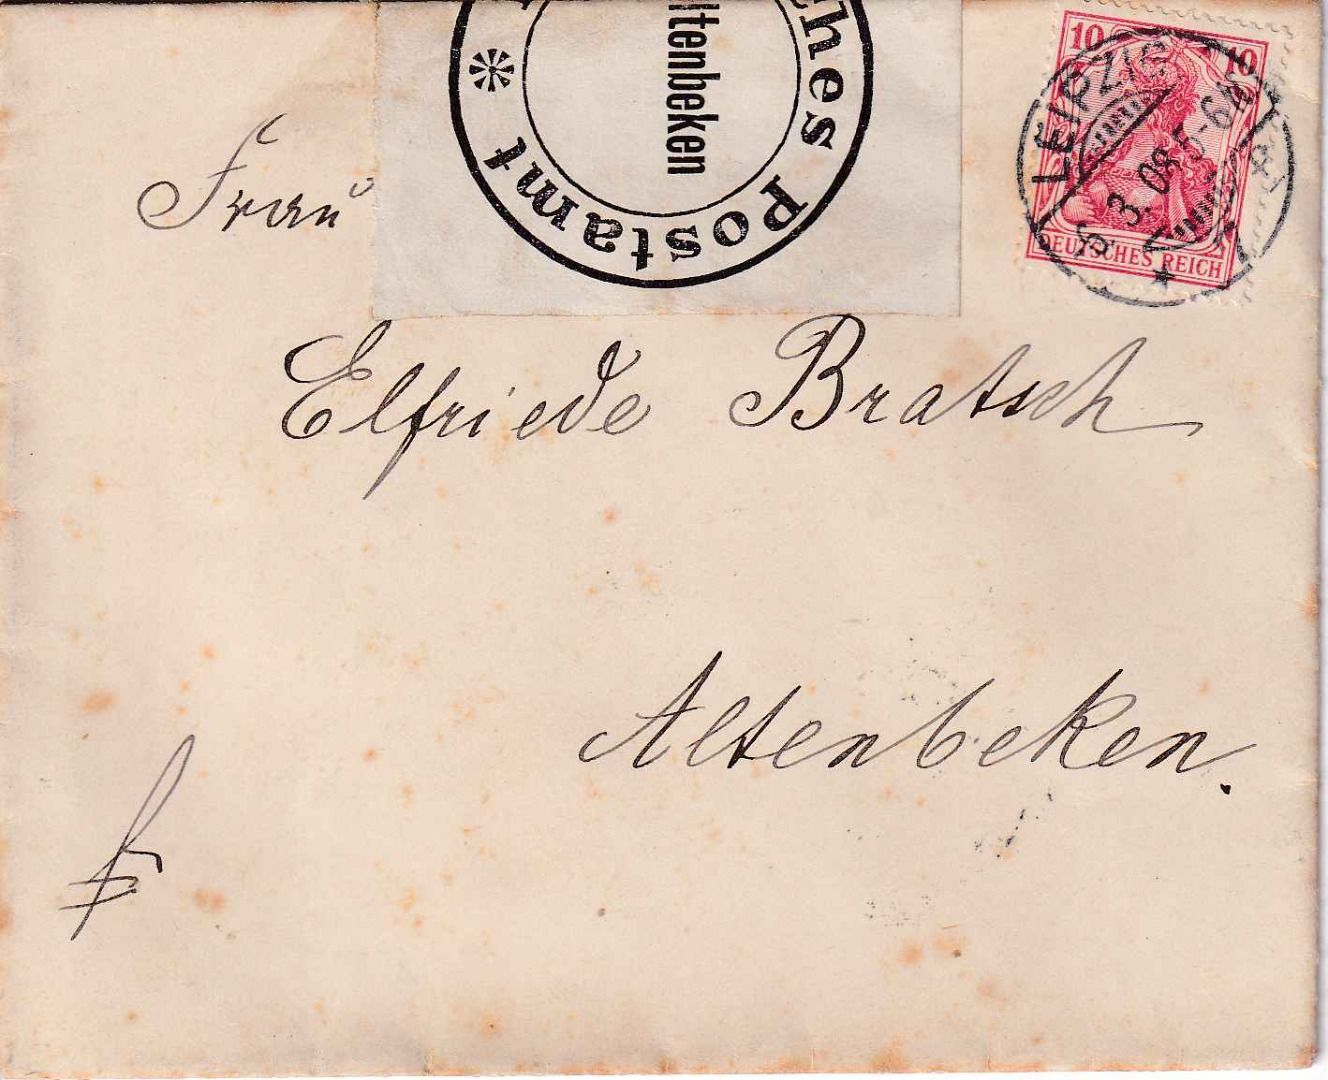 ches Postamt *
ltenbeken
10 10
DEUTSCHES REICH
LEIPZIG
3. 08. 5-6
Frau
Elfriede Bratsch
Altenbeken.